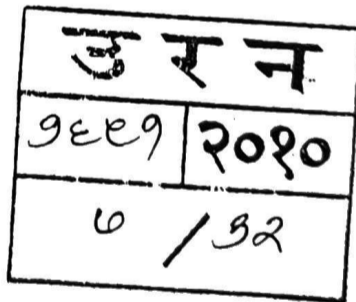 उरन
१६९१ २०१०
७ / ३२